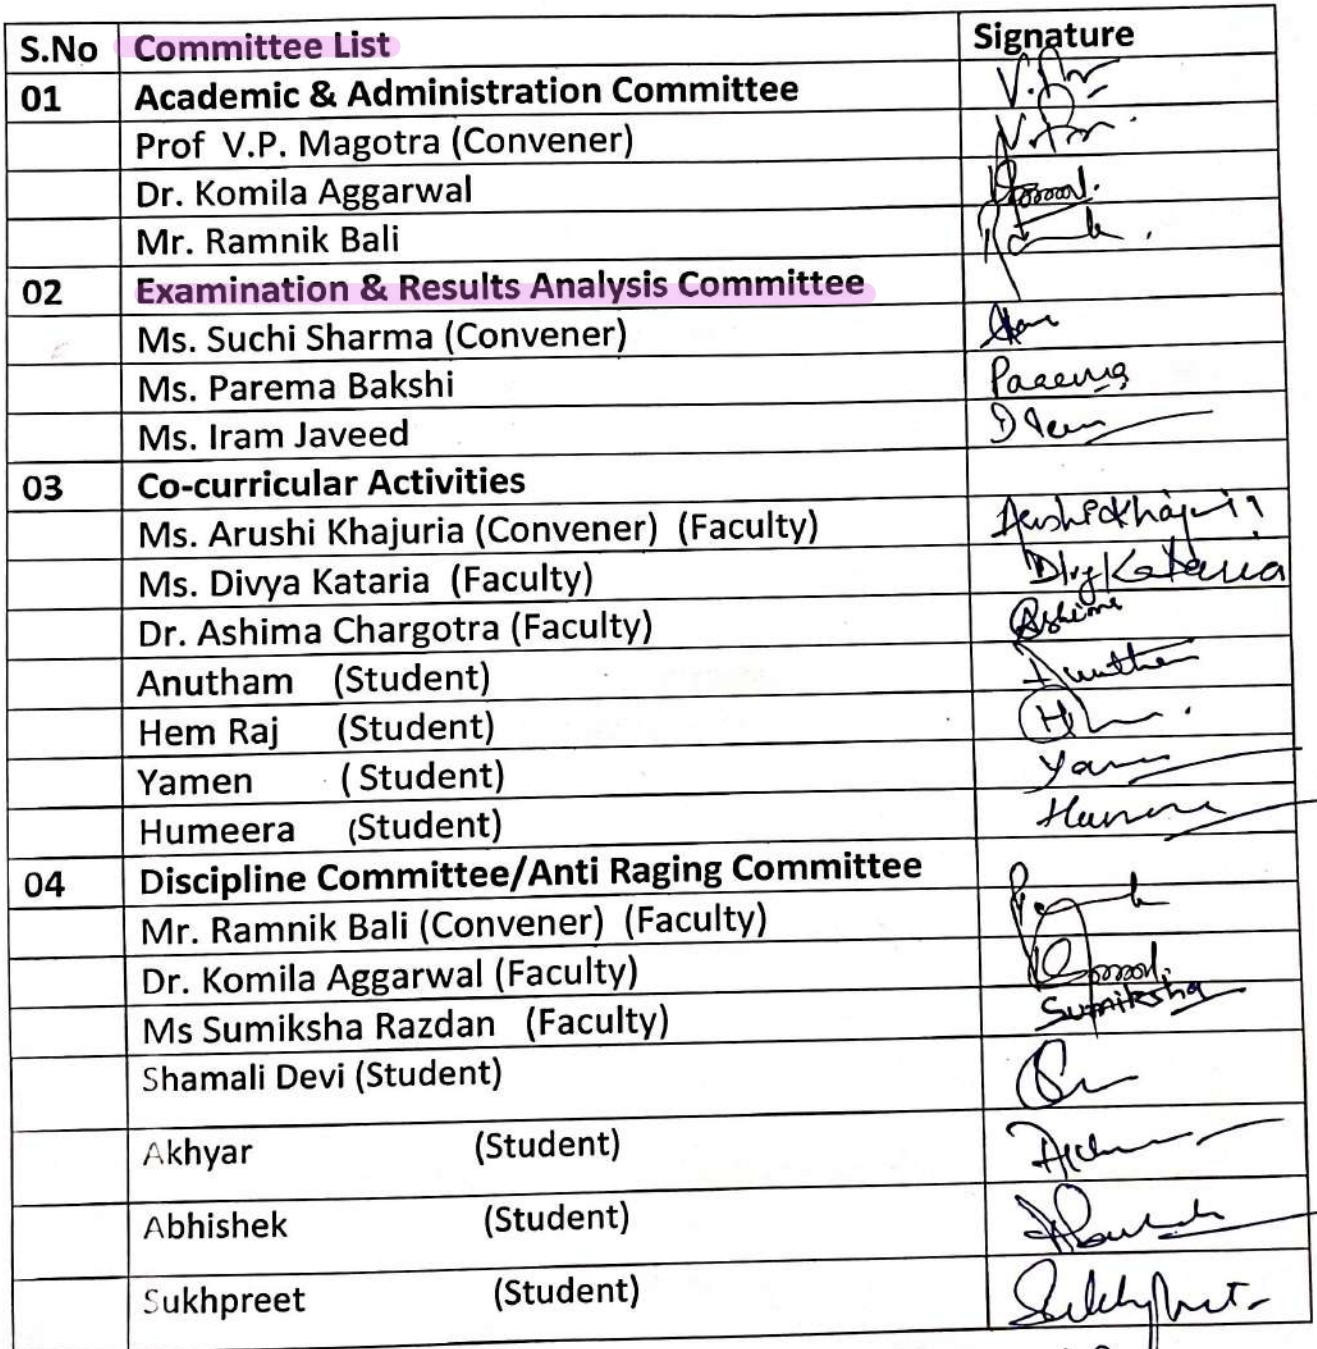 S.No Committee List Signature
01 Academic & Administration Committee
Prof V.P. Magotra (Convener)
Dr. Komila Aggarwal
Mr. Ramnik Bali
02 Examination & Results Analysis Committee
Ms. Suchi Sharma (Convener)
Ms. Parema Bakshi
Ms. Iram Javeed
03 Co-curricular Activities
Ms. Arushi Khajuria (Convener) (Faculty)
Ms. Divya Kataria (Faculty)
Dr. Ashima Chargotra (Faculty) Ashima
Anutham (Student)
Hem Raj (Student)
Yamen ( Student)
Humeera (Student)
04 Discipline Committee/Anti Raging Committee
Mr. Ramnik Bali (Convener) (Faculty)
Dr. Komila Aggarwal (Faculty)
Ms Sumiksha Razdan (Faculty) Sumiksha
Shamali Devi (Student)
Akhyar (Student)
Abhishek (Student)
Sukhpreet (Student)